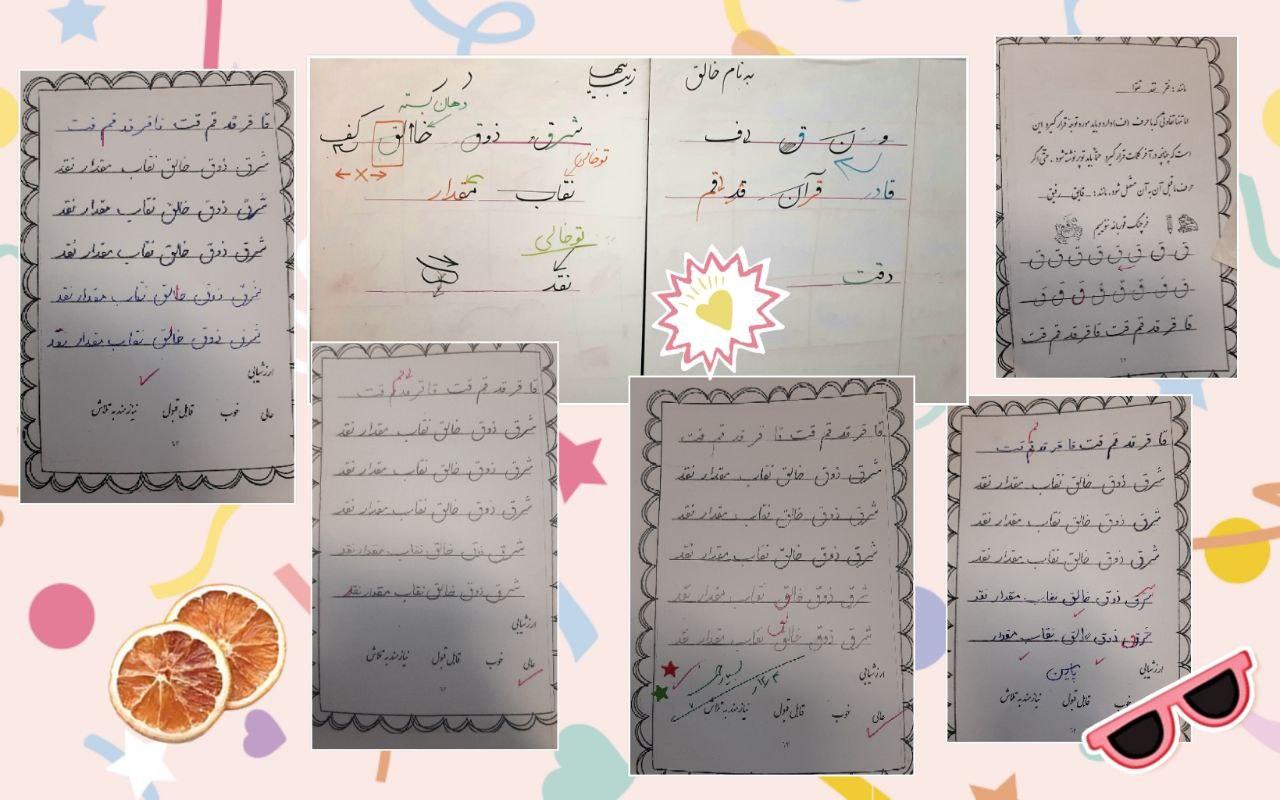 به نام خالق
زیبایها
ق
دف
قادر قرآن قد قم
دقت
دهان بسته
شرق ذوق خالق کف
توخالی
نقاب مقدار
توخالی
نقد
قا قر قد قم قت قا قر قد قم قت
شرق ذوق خالق نقاب مقدار نقد
شرق ذوق خالق نقاب مقدار نقد
شرق ذوق خالق نقاب مقدار نقد
شرق ذوق خالق نقاب مقدار نقد
شرق ذوق خالق نقاب مقدار نقد
ارزشیابی
عالی خوب قابل قبول نیازمند به تلاش
مانند: فقر _ نقد _ تقوا
است که چنانچه در آخر کلمات قرار گیرد حتماً باید توپر نوشته شود. حتی اگر
حرف ماقبل آن به آن متصل شود. مانند:
ق ق ق ق ق ق ق ق
ق ق ق ق ق ق ق ق
قا قر قد قم قت قا قر قد قم قت
قا قر قد قم قت قا قر قد قم قت
شرق ذوق خالق نقاب مقدار نقد
شرق ذوق خالق نقاب مقدار نقد
شرق ذوق خالق نقاب مقدار نقد
شرق ذوق خالق نقاب مقدار نقد
شرق ذوق خالق نقاب مقدار نقد
ارزشیابی
عالی خوب قابل قبول نیازمند به تلاش
قا قر قد قم قت قا قر قد قم قت
شرق ذوق خالق نقاب مقدار نقد
شرق ذوق خالق نقاب مقدار نقد
شرق ذوق خالق نقاب مقدار نقد
شرق ذوق خالق نقاب مقدار نقد
شرق ذوق خالق نقاب مقدار نقد
ارزشیابی
عالی خوب قابل قبول نیازمند به تلاش
قا قر قد قم قت قا قر قد قم قت
شرق ذوق خالق نقاب مقدار نقد
شرق ذوق خالق نقاب مقدار نقد
شرق ذوق خالق نقاب مقدار نقد
شرق ذوق خالق نقاب مقدار نقد
شرق ذوق نقاب مقدار
ارزشیابی
خوب قابل قبول نیازمند به تلاش